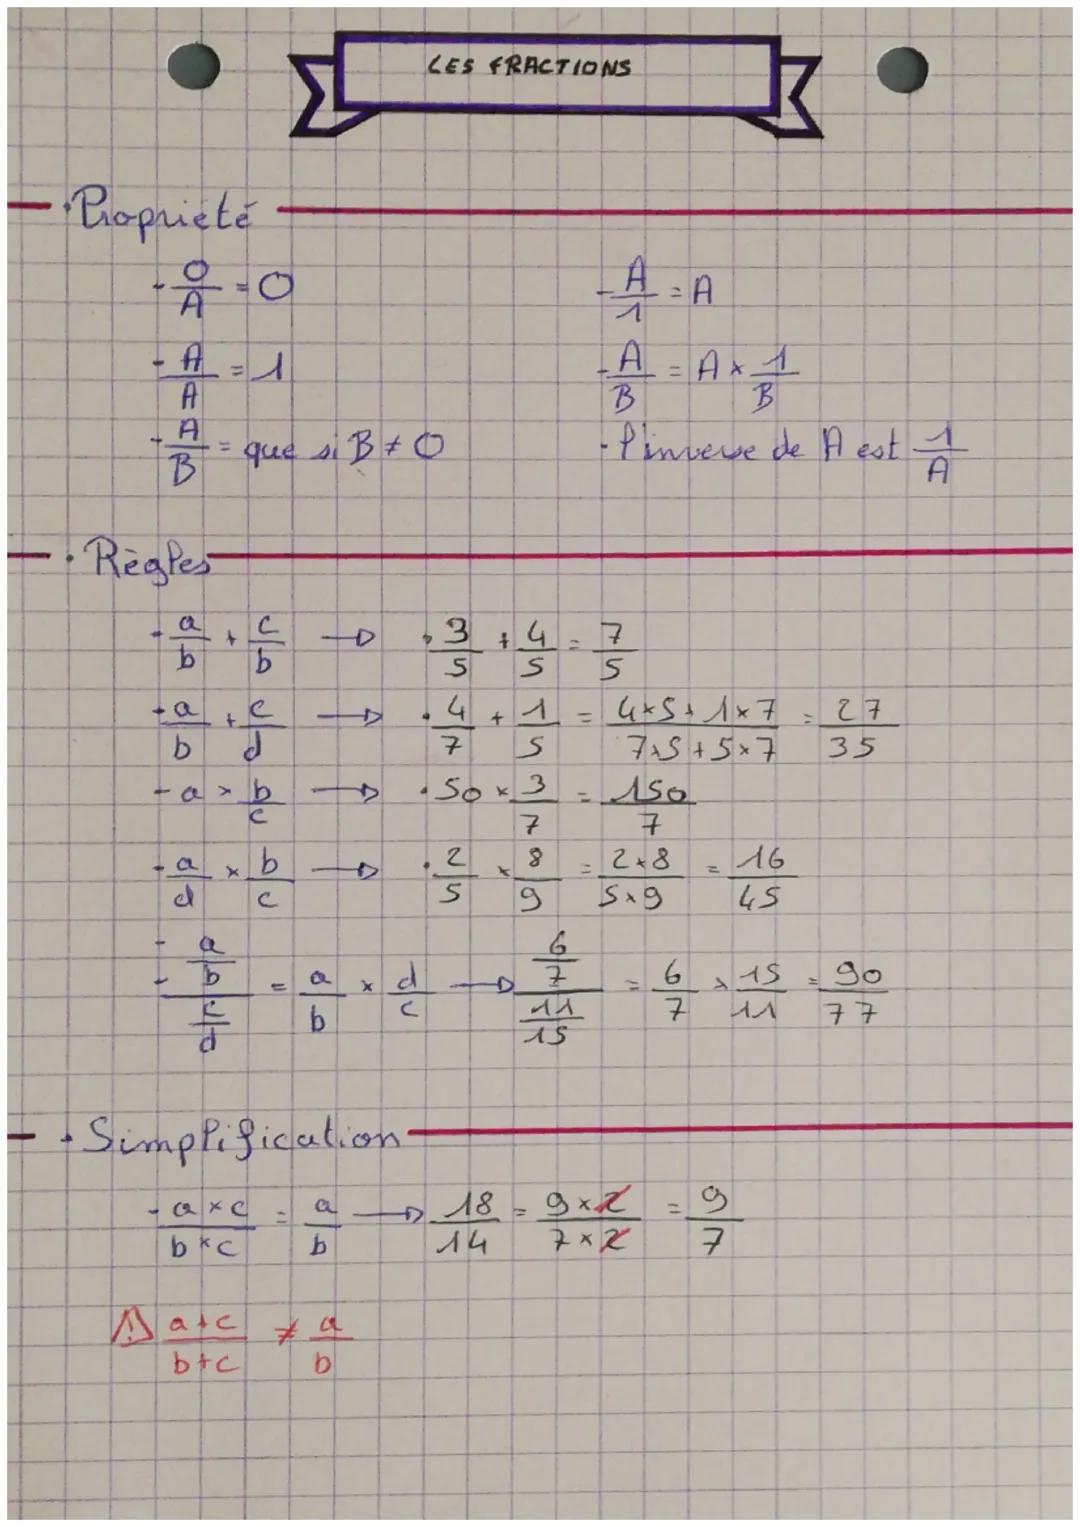 LES FRACTIONS
· Propriété
- 0/A = 0
- A/1 = A
- A/A = 1
- A/B = A × 1/B
- A/B = que si B ≠ 0
- l'inverse de A est 1/A
· Règles
- a/b + c/b → · 3/5 + 4/5 = 7/5
- a/b + c/d → · 4/7 + 1/5 = (4×5+1×7)/(7×5+5×7) = 27/35
- a × b/c → · 50 × 3/7 = 150/7
- a/d × b/c → · 2/5 × 8/9 = (2×8)/(5×9) = 16/45
- (a/b)/(c/d) = a/b × d/c → (6/7)/(11/15) = 6/7 × 15/11 = 90/77
· Simplification
- (a×c)/(b×c) = a/b → 18/14 = (9×2)/(7×2) = 9/7
⚠ (a+c)/(b+c) ≠ a/b